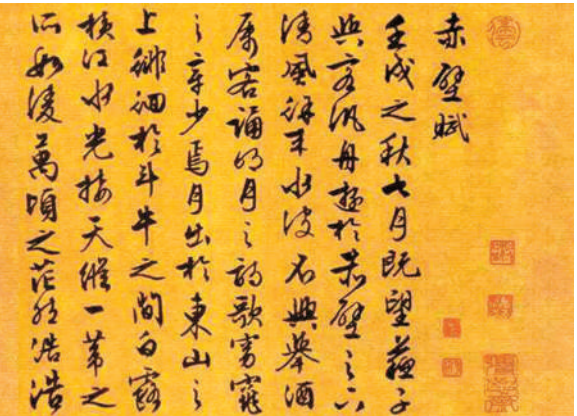 赤壁賦
壬戌之秋七月既望蘇子
與客汎舟遊於赤壁之下
清風徐來水波不興舉酒
屬客誦明月之詩歌窈窕
之章少焉月出於東山之
上徘徊於斗牛之間白露
橫江水光接天縱一葦之
所如凌萬頃之茫然浩浩